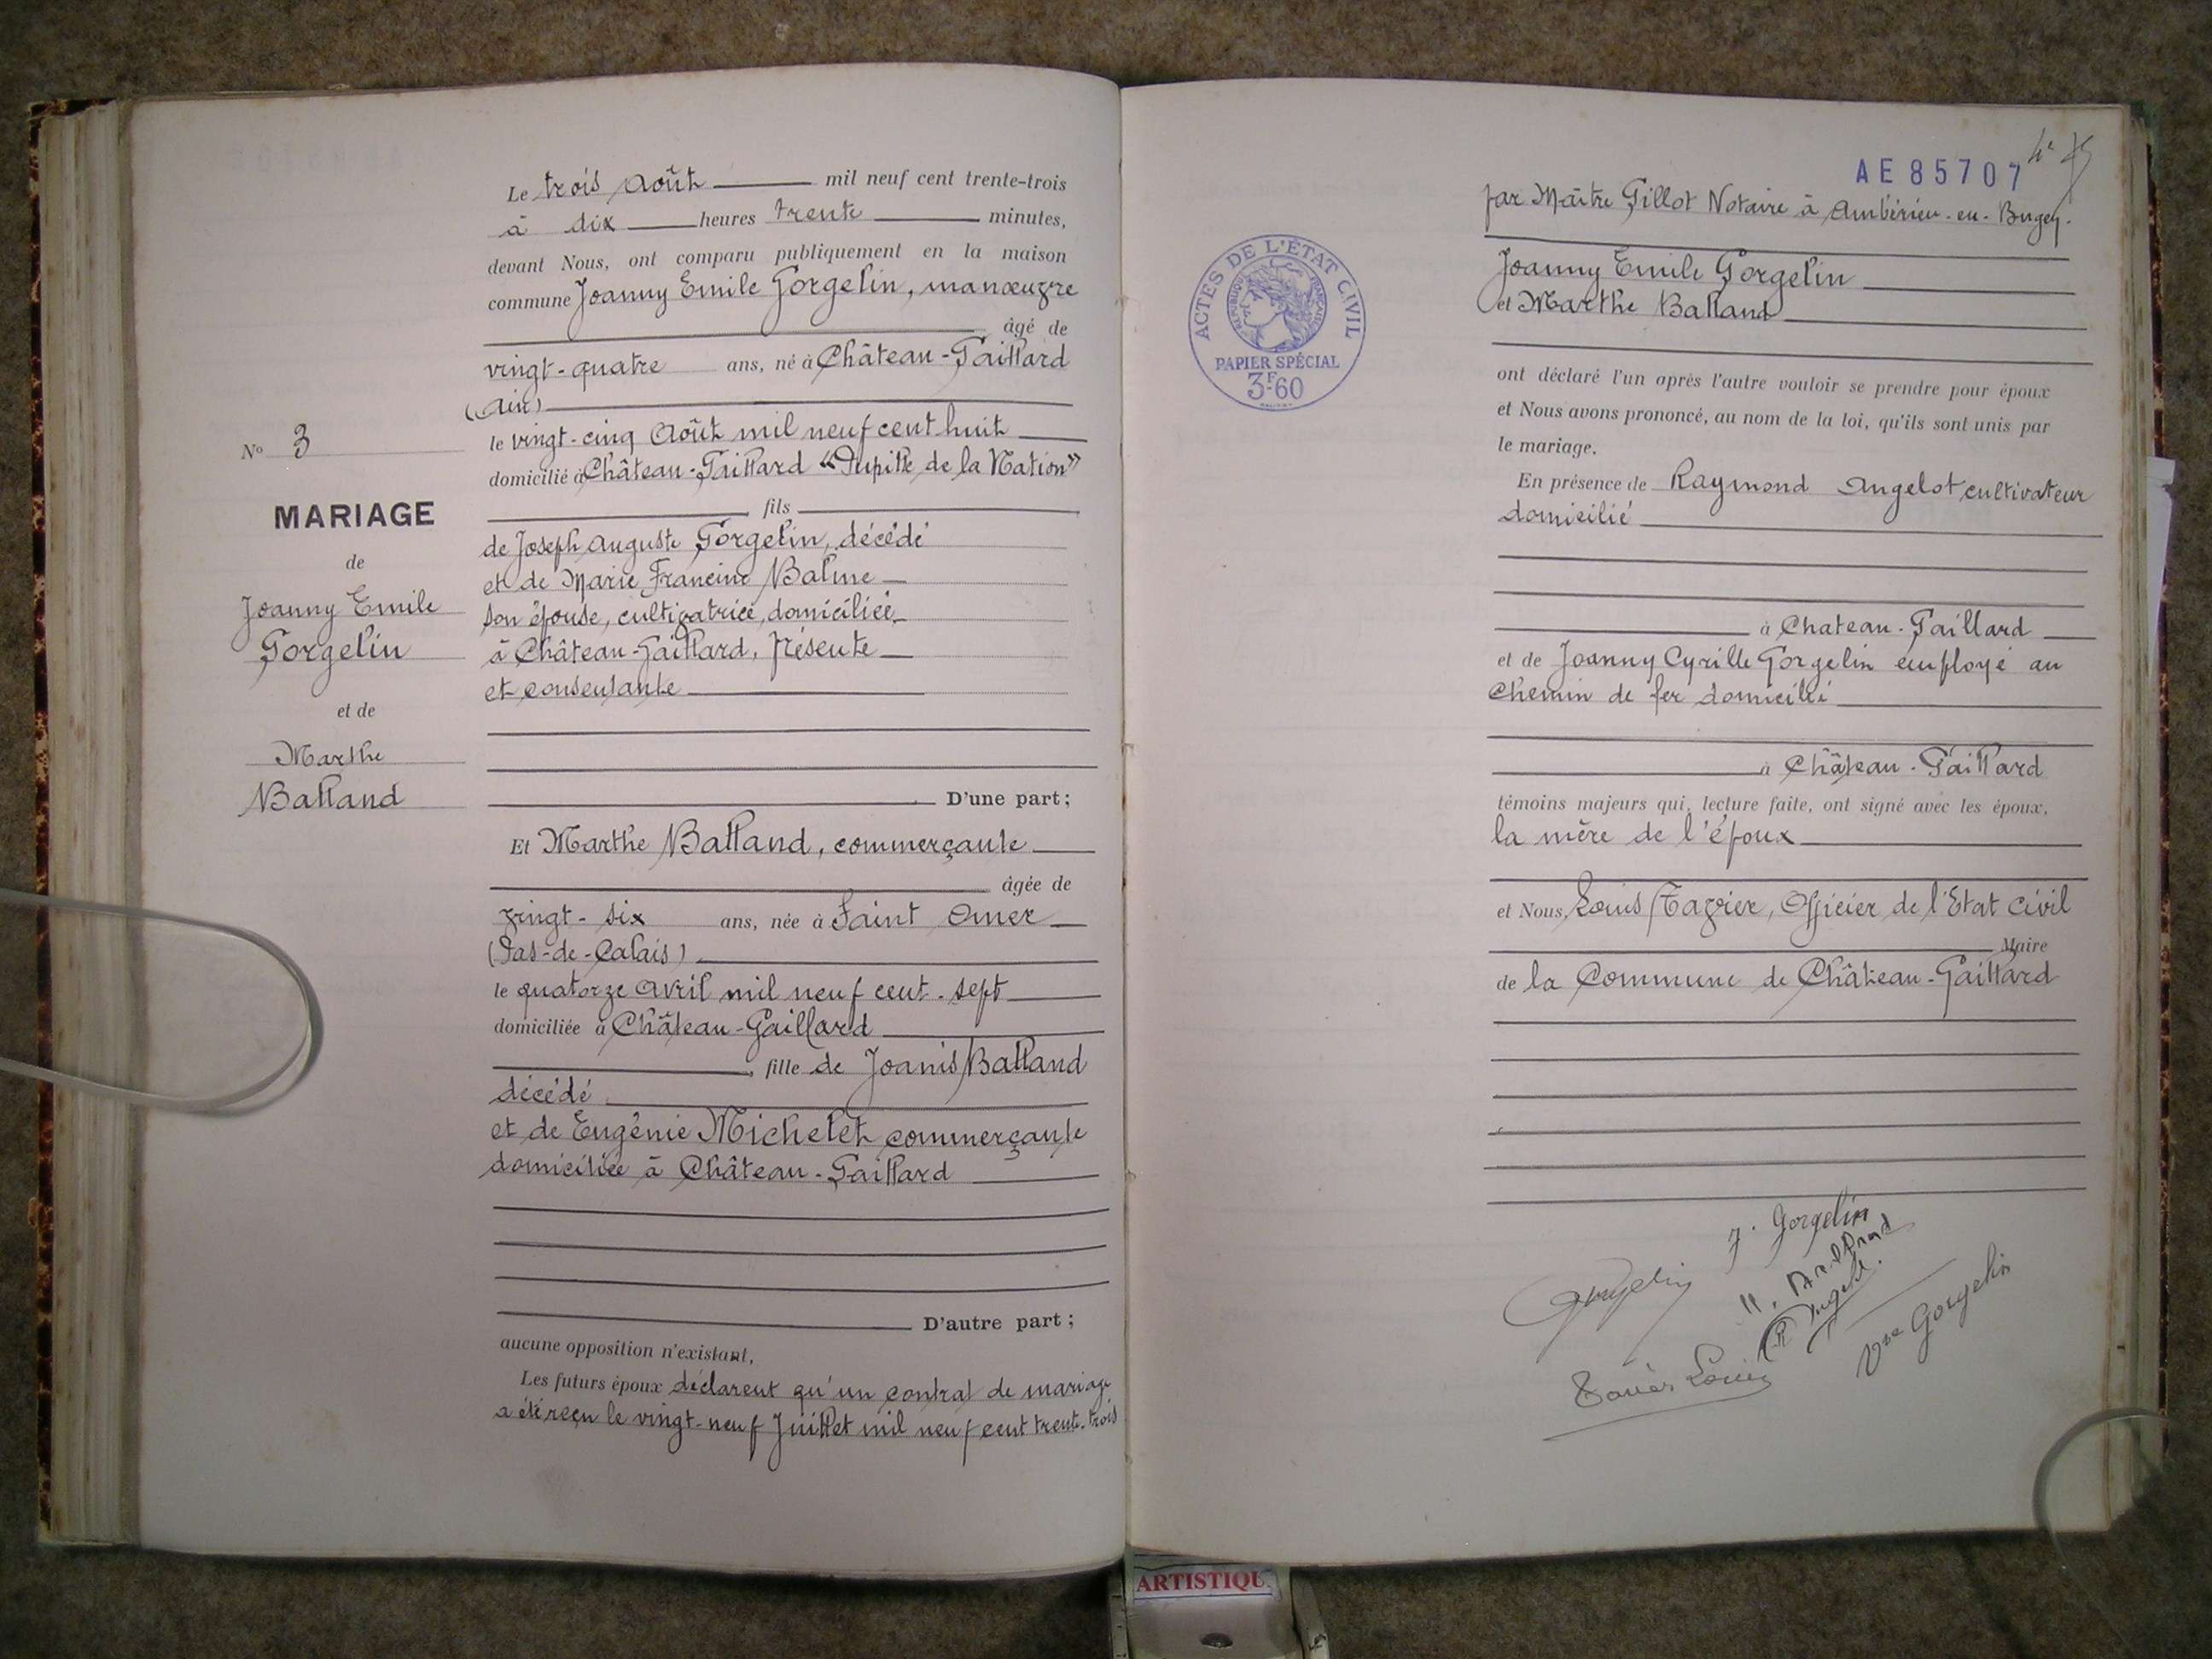 Le trois Août mil neuf cent trente-trois
à dix heures trente minutes,
devant Nous, ont comparu publiquement en la maison
commune Joanny Emile Gorgelin, manœuvre
âgé de
vingt-quatre ans, né à Château-Gaillard
(Ain)
le vingt-cinq Août mil neuf cent huit
domicilié à Château-Gaillard "Pupille de la Nation"
fils
de Joseph Auguste Gorgelin, décédé
et de Marie Francine Balme
son épouse, cultivatrice, domiciliée
à Château-Gaillard, Présente
et consentante
D'une part;
No 3
MARIAGE
de
Joanny Emile
Gorgelin
et de
Marthe
Balland
Et Marthe Balland, commerçante
âgée de
vingt-six ans, née à Saint Omer
(Pas-de-Calais)
le quatorze Avril mil neuf cent-sept
domiciliée à Château-Gaillard
, fille de Joanis Balland
décédé
et de Eugénie Michelet commerçante
domiciliée à Château-Gaillard
D'autre part;
aucune opposition n'existant,
Les futurs époux déclarent qu'un contrat de mariage
a été reçu le vingt-neuf Juillet mil neuf cent trente-trois
AE 85707
par Maître Gillot Notaire à Ambérieu-en-Bugey.
Joanny Emile Gorgelin
et Marthe Balland
ont déclaré l'un après l'autre vouloir se prendre pour époux
et Nous avons prononcé, au nom de la loi, qu'ils sont unis par
le mariage.
En présence de Raymond Angelot cultivateur
domicilié
à Chateau-Gaillard
et de Joanny Cyrille Gorgelin employé au
Chemin de fer domicilié
à Château-Gaillard
témoins majeurs qui, lecture faite, ont signé avec les époux,
la mère de l'époux
et Nous, Louis Tavier, Officier de l'Etat Civil
Maire
de la Commune de Château-Gaillard
J. Gorgelin
Gorgelin
M. Balland
R Angelot.
Vve Gorgelin
Louis
ACTES DE L'ÉTAT CIVIL
RÉPUBLIQUE FRANÇAISE
PAPIER SPÉCIAL
3F60
ARTISTIQU